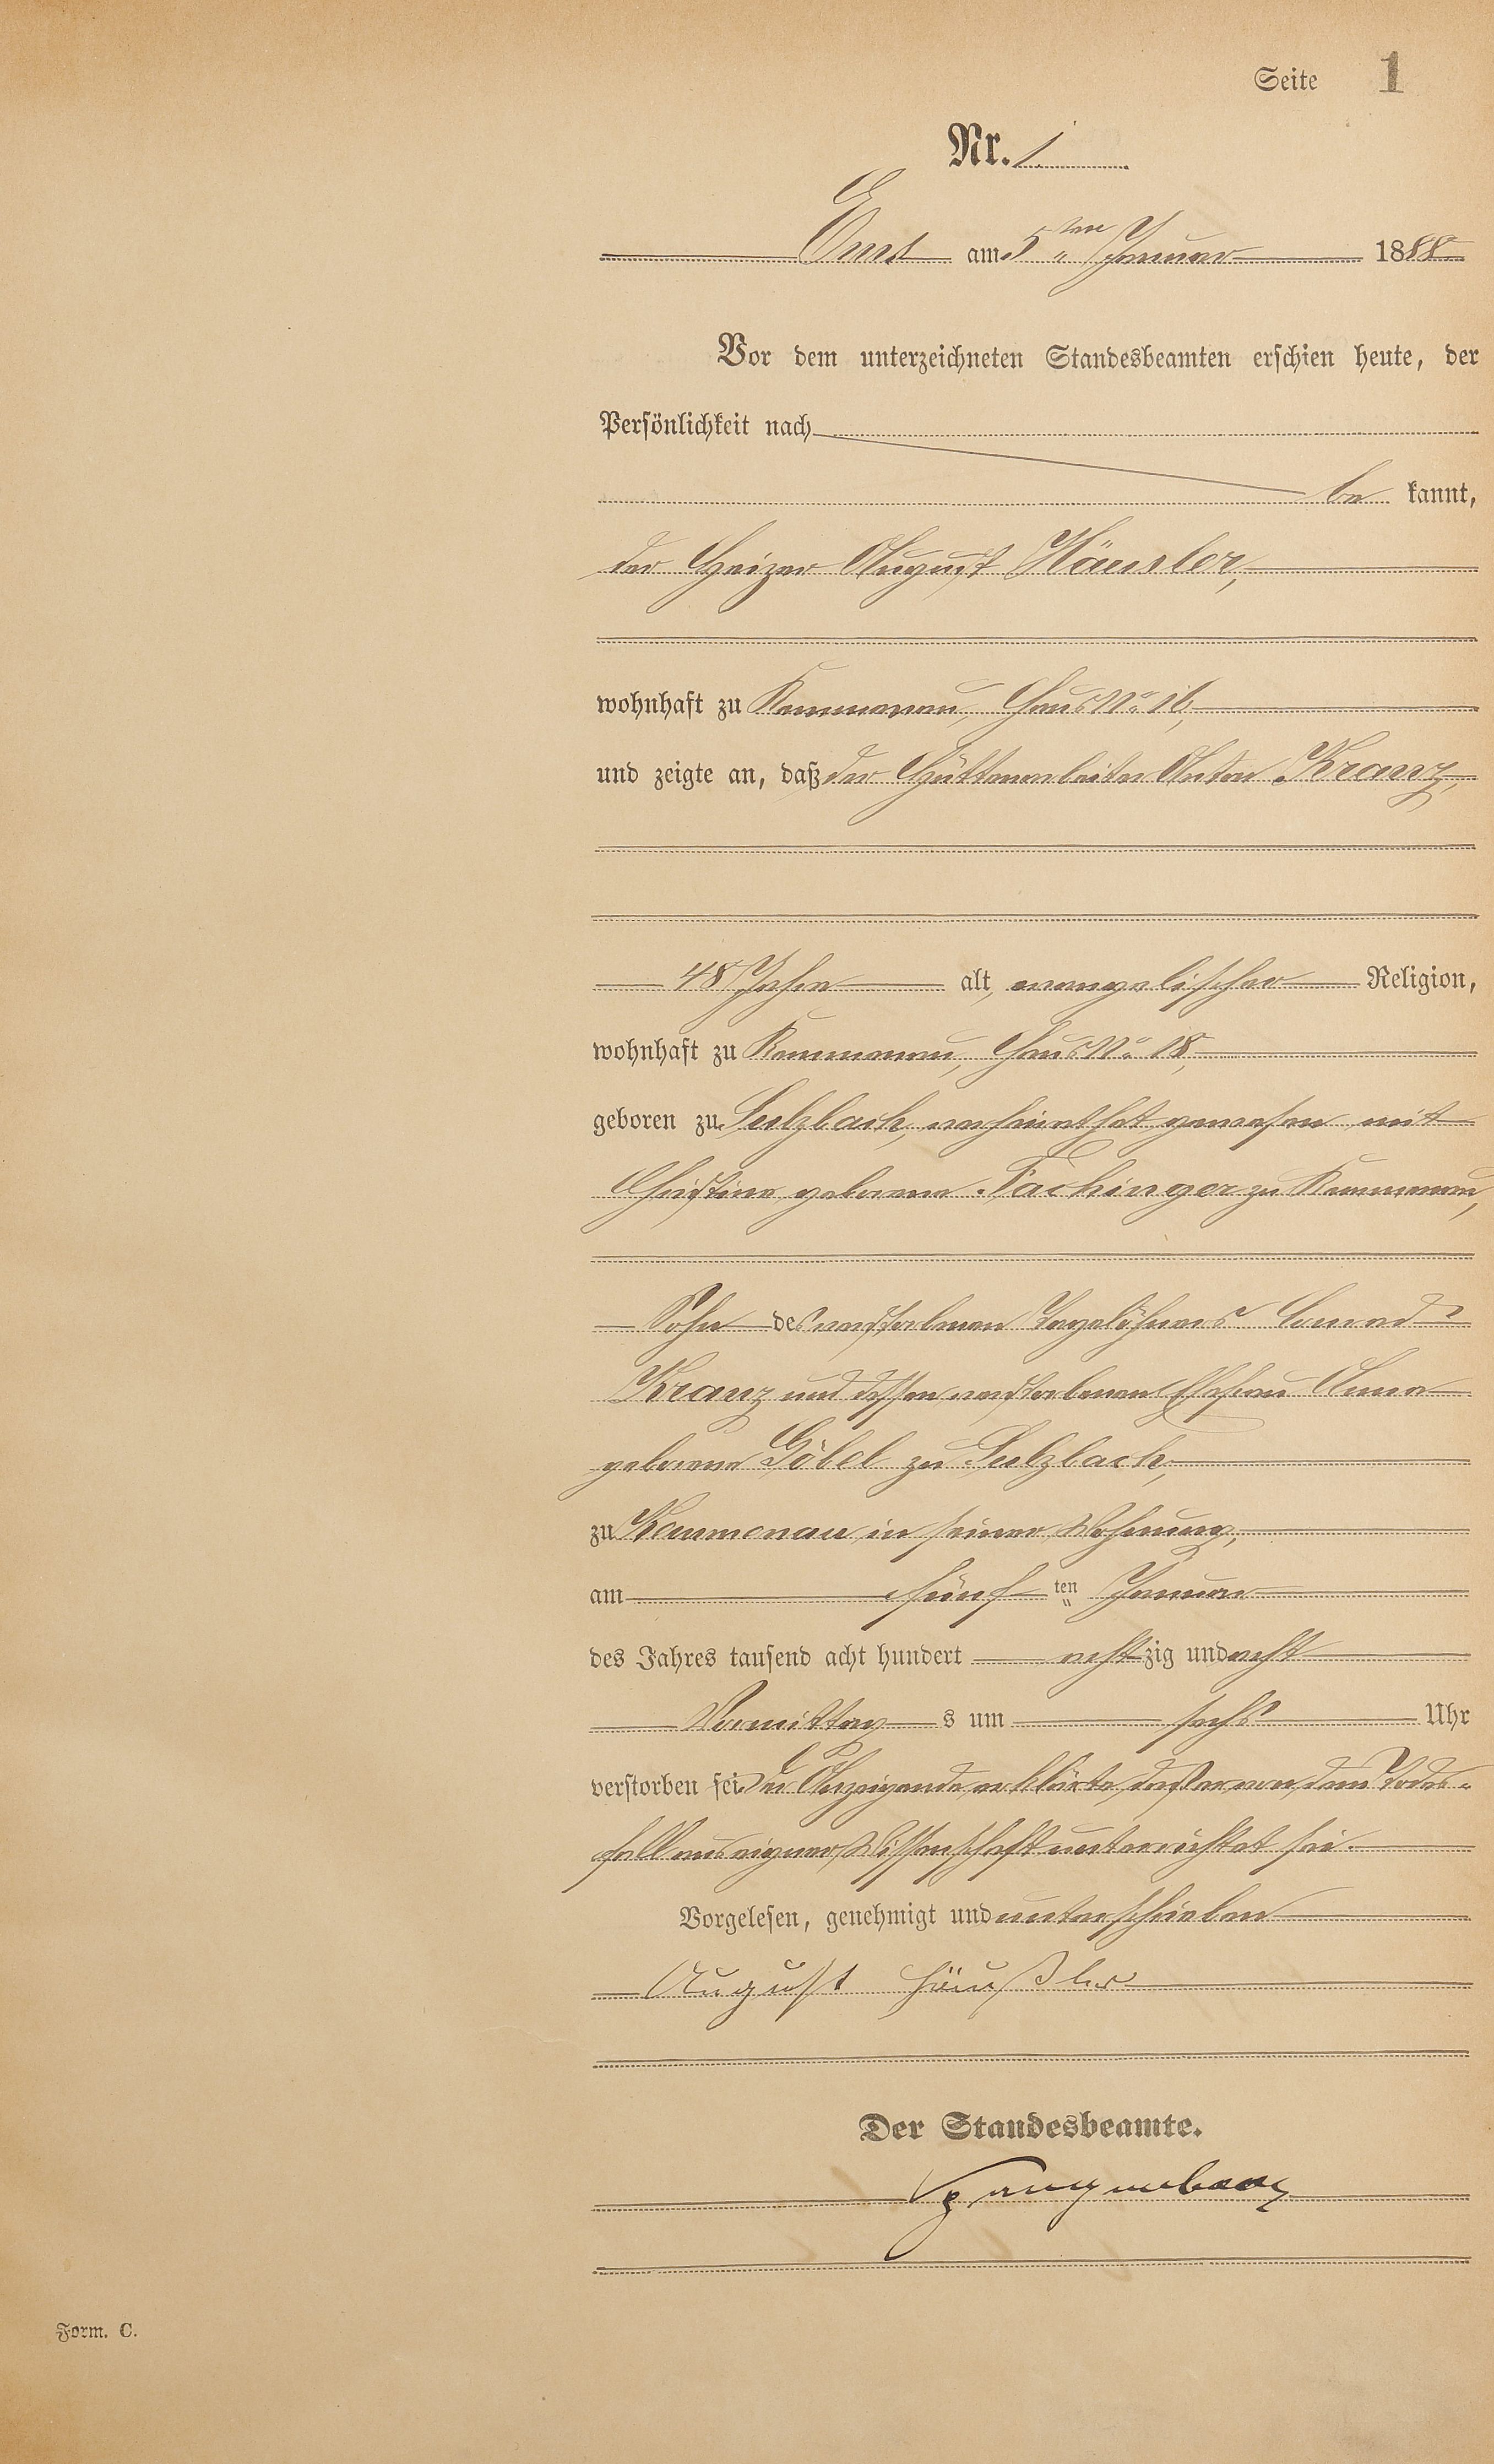 Seite 1
Nr. 1
Ems am 5ten Januar 1888
Vor dem unterzeichneten Standesbeamten erschien heute, der
Persönlichkeit nach
be kannt,
der Heizer August Häusler,
wohnhaft zu Kemmenau, Haus No 16,
und zeigte an, daß der Hüttenarbeiter Anton Kranz,
48 Jahre alt, evangelischer Religion,
wohnhaft zu Kemmenau, Haus No 18,
geboren zu Sulzbach, verheirathet gewesen mit
Christine geborene Fachinger zu Kemmenau,
Sohn des verstorbenen Tagelöhners Conrad
Kranz und dessen verstorbenen Ehefrau Anna
geborene Göbel zu Sulzbach,
zu Kemmenau in seiner Wohnung,
am fünf ten Januar
des Jahres tausend acht hundert acht zig und acht
Vormittag s um sechs Uhr
verstorben sei. Der Anzeigende erklärte, daß er von dem Todes-
fall aus eigner Wissenschaft unterrichtet sei.
Vorgelesen, genehmigt und unterschrieben
August Häußler
Der Standesbeamte.
Form. C.